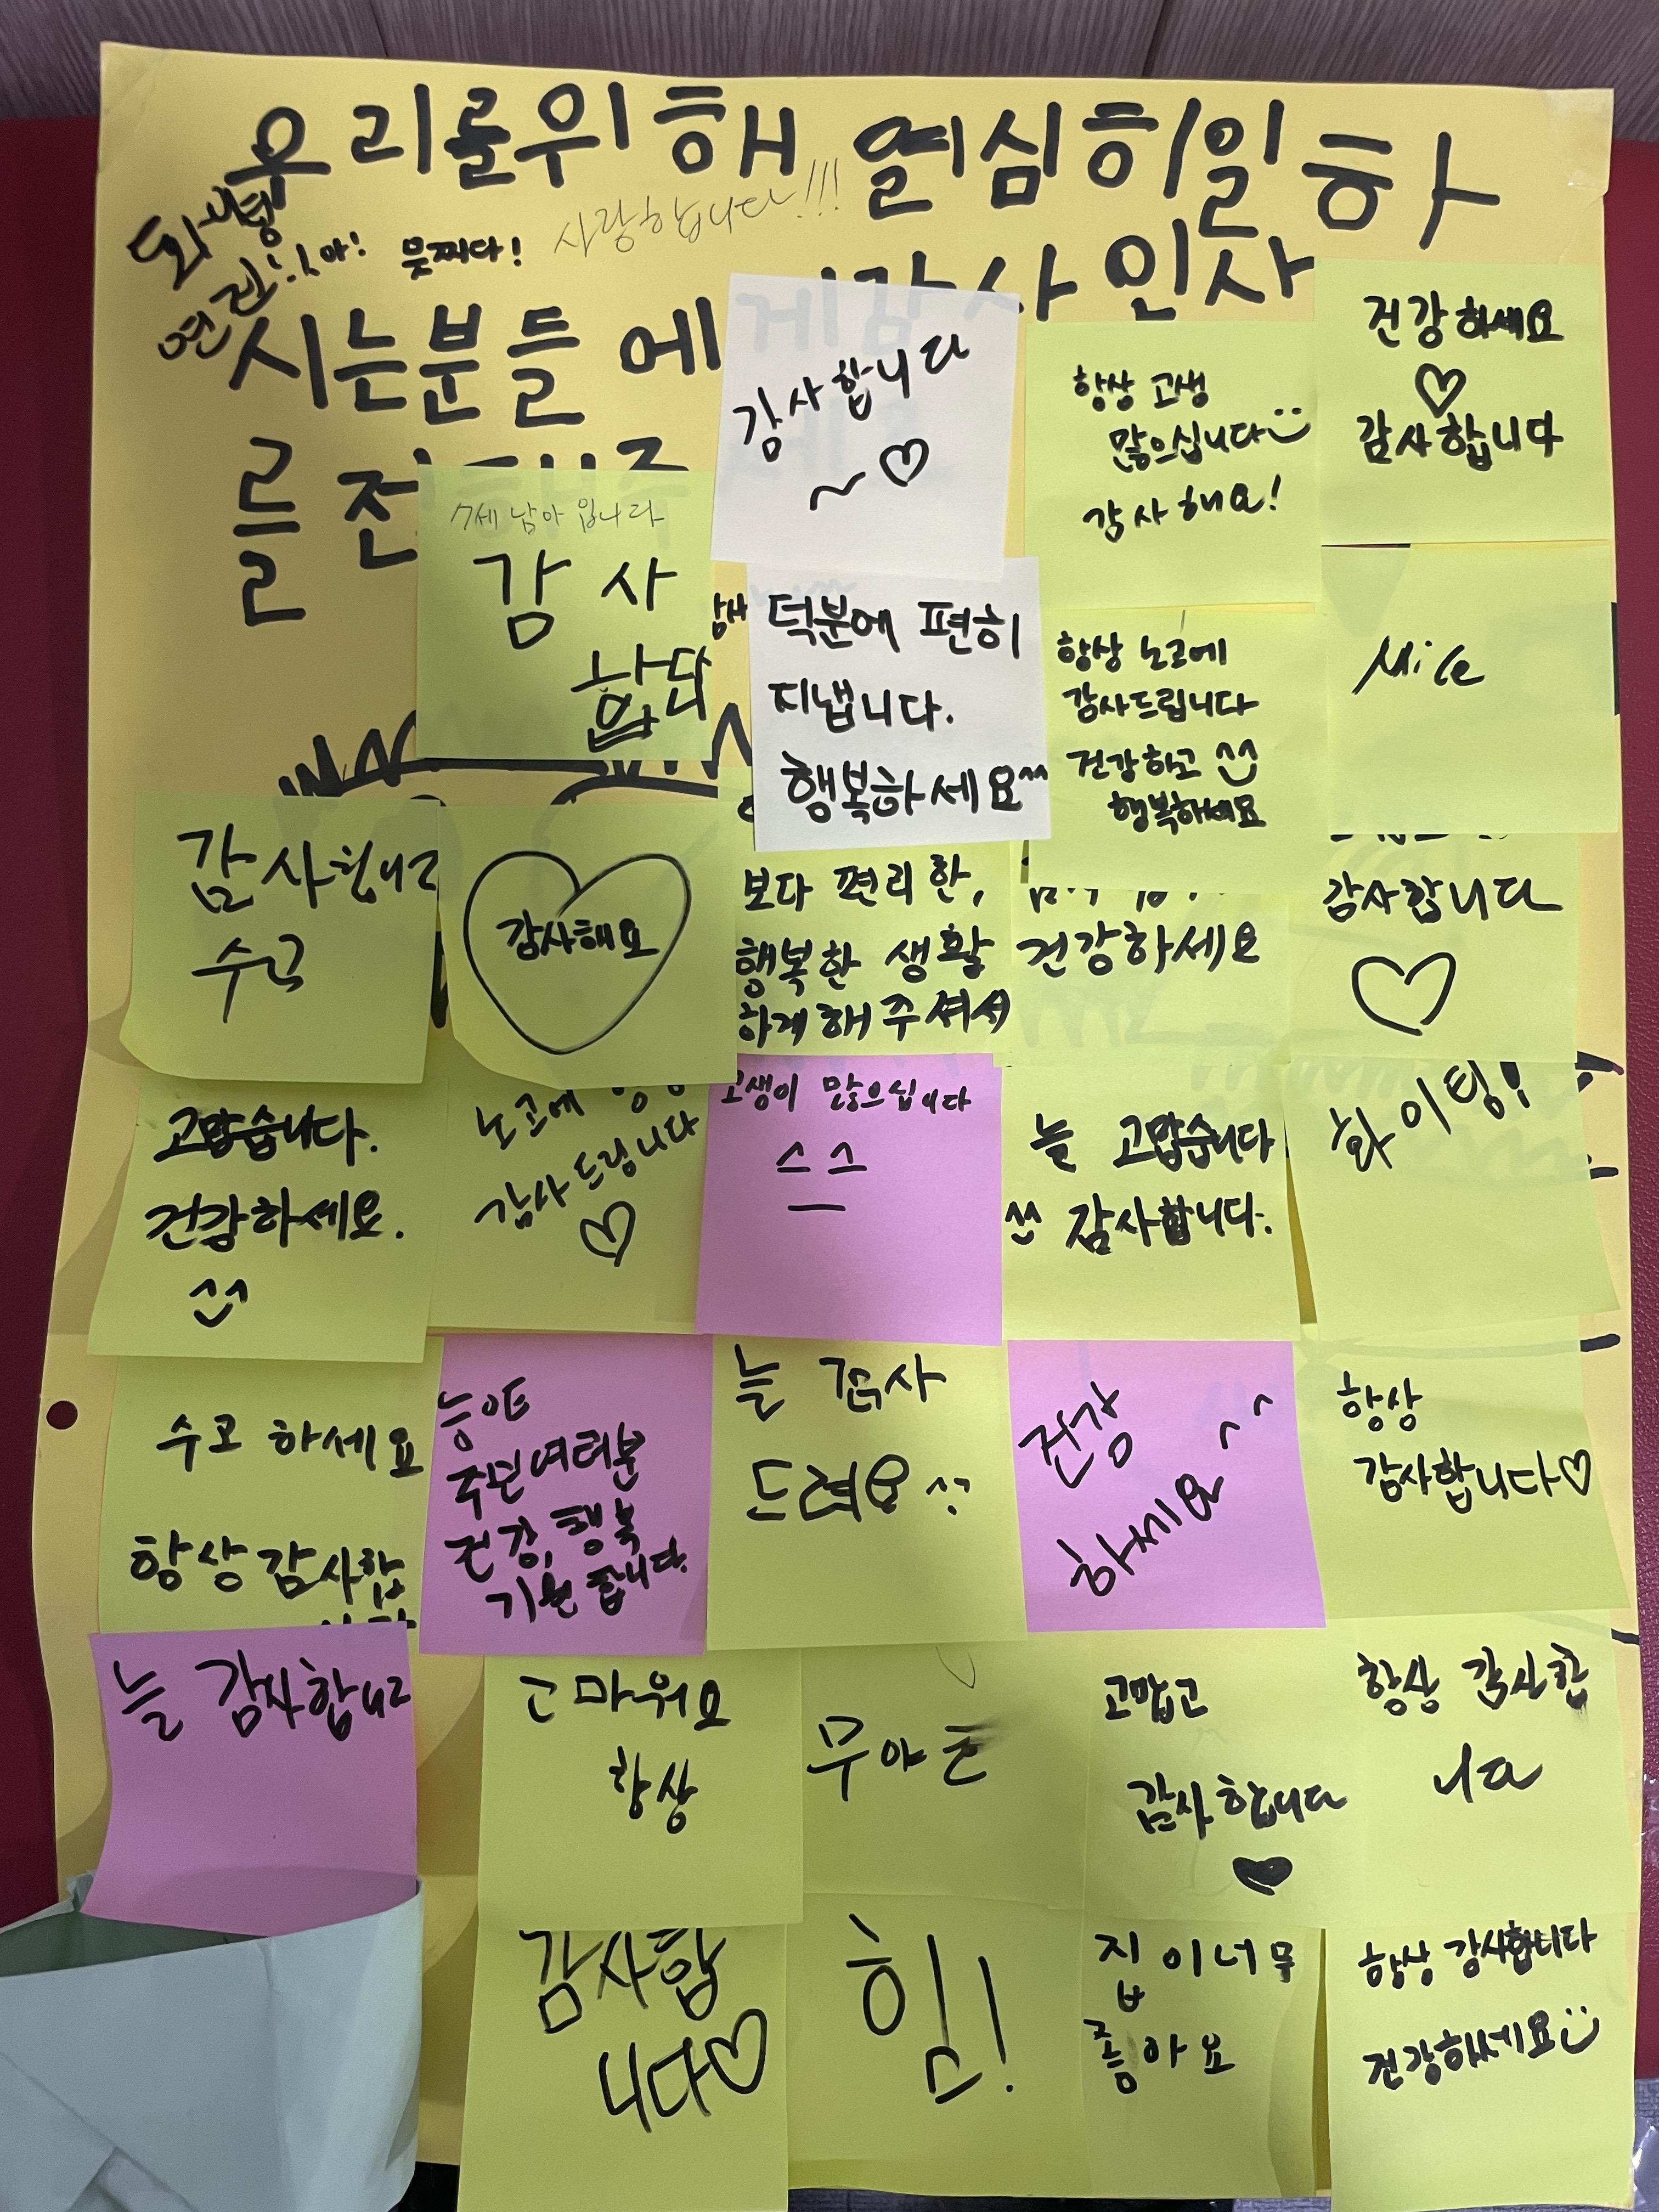 우리를위해 열심히일하
시는분들에게감사인사
를 전
멋찌다!
사랑합니다!!!
감사합니다
~♡
항상 고생
많으십니다
감사해요!
건강하세요
♡
감사합니다
7세 남아입니다
감사
합니다
덕분에 편히
지냅니다.
행복하세요^^
항상 노고에
감사드립니다
건강하고 ^^
행복하세요
감사합니
수고
감사해요
보다 편리한,
행복한 생활
하게해주셔서
건강하세요
감사합니다
♡
고맙습니다.
건강하세요.
^^
노고에 항상
감사드립니다
♡
고생이 많으십니다
늘 고맙습니다
^^ 감사합니다.
화이팅!
수고 하세요
항상감사합
니다
국민여러분
건강, 행복
기원합니다.
늘 감사
드려요^^
건강
하세요^^
항상
감사합니다♡
늘 감사합니다
고마워요
항상
무야호
고맙고
감사합니다
♥
항상 감사합
니다
감사합
니다♡
힘!
집이너무
좋아요
항상 감사합니다
건강하세요